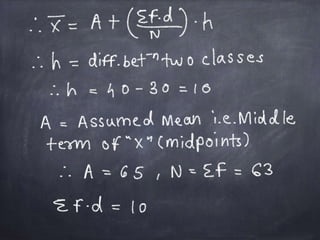 ∴ x̄ = A + (Σf.d / N) · h
∴ h = diff. betⁿ two classes
∴ h = 40 - 30 = 10
A = Assumed Mean i.e. Middle
term of "x" (midpoints)
∴ A = 65 , N = Σf = 63
Σf·d = 10